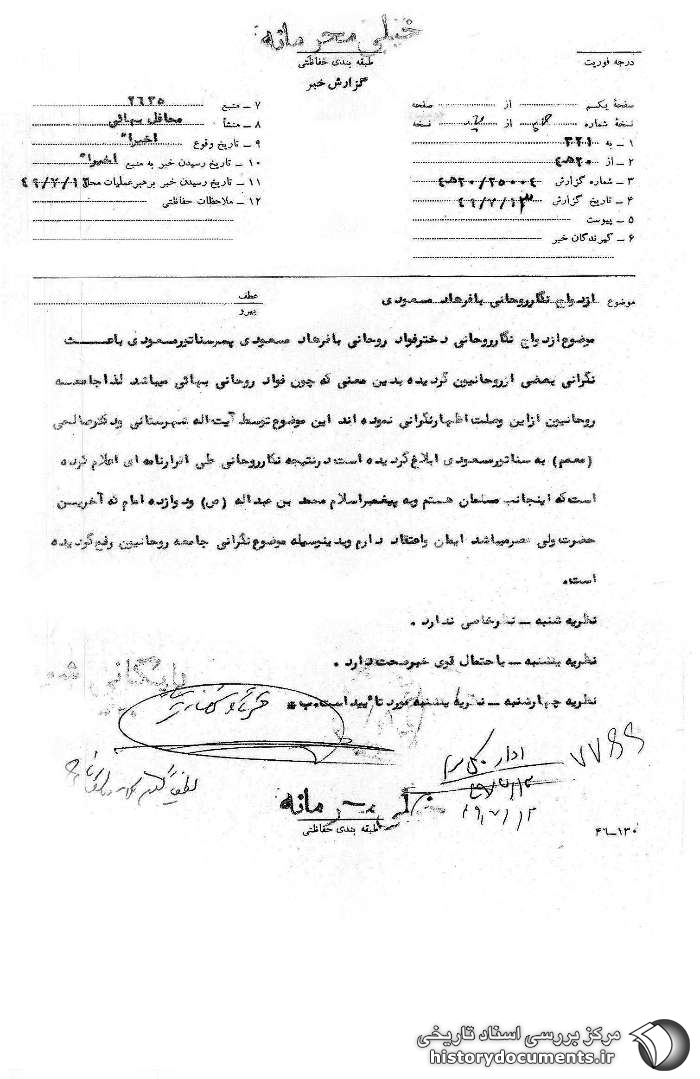 خیلی محرمانه
طبقه بندی حفاظتی
درجه فوریت
گزارش خبر
صفحهٔ یکم از صفحه
نسخهٔ شماره از نسخه
۱ ـ به ۳۲۱
۲ ـ از ۲۰ﻫ۴
۳ ـ شماره گزارش ۲۰/۲۵۰۰۴ﻫ۴
۴ ـ تاریخ گزارش ۴۹/۷/۱۳
۵ ـ پیوست
۶ ـ گیرندگان خبر
۷ ـ منبع ۲۶۲۵
۸ ـ منشأ محافل بهائی
۹ ـ تاریخ وقوع اخیراً
۱۰ ـ تاریخ رسیدن خبر به منبع اخیراً
۱۱ ـ تاریخ رسیدن خبر برهبر عملیات محل ۴۹/۷/۱۲
۱۲ ـ ملاحظات حفاظتی
موضوع ازدواج نگارروحانی بافرهاد مسعودی
عطف
پیرو
موضوع ازدواج نگارروحانی دخترفواد روحانی بافرهاد مسعودی پسرسناتورمسعودی باعث
نگرانی بعضی ازروحانیون گردیده بدین معنی که چون فواد روحانی بهائی میباشد لذاجامعه
روحانیون ازاین وصلت اظهارنگرانی نموده اند این موضوع توسط آیت اله شهرستانی ودکترصالحی
(معمم) به سناتورمسعودی ابلاغ گردیده است درنتیجه نگارروحانی طی اقرارنامه ای اعلام کرده
است که اینجانب مسلمان هستم وبه پیغمبراسلام محمد بن عبداله (ص) ودوازده امام که آخرین
حضرت ولی عصرمیباشد ایمان واعتقاد دارم وبدینوسیله موضوع نگرانی جامعه روحانیون رفع گردیده
است.
نظریه شنبه ـ نظرخاصی ندارد .
نظریه یکشنبه ـ باحتمال قوی خبرصحت دارد .
نظریه چهارشنبه ـ نظریه یکشنبه مورد تائید است. ب *
بایگانی شد
۷۷۴۹
۴۹/۷/۱۳
خیلی محرمانه
طبقه بندی حفاظتی
۴۶ــ۱۳۰
مرکز بررسی اسناد تاریخی
historydocuments.ir